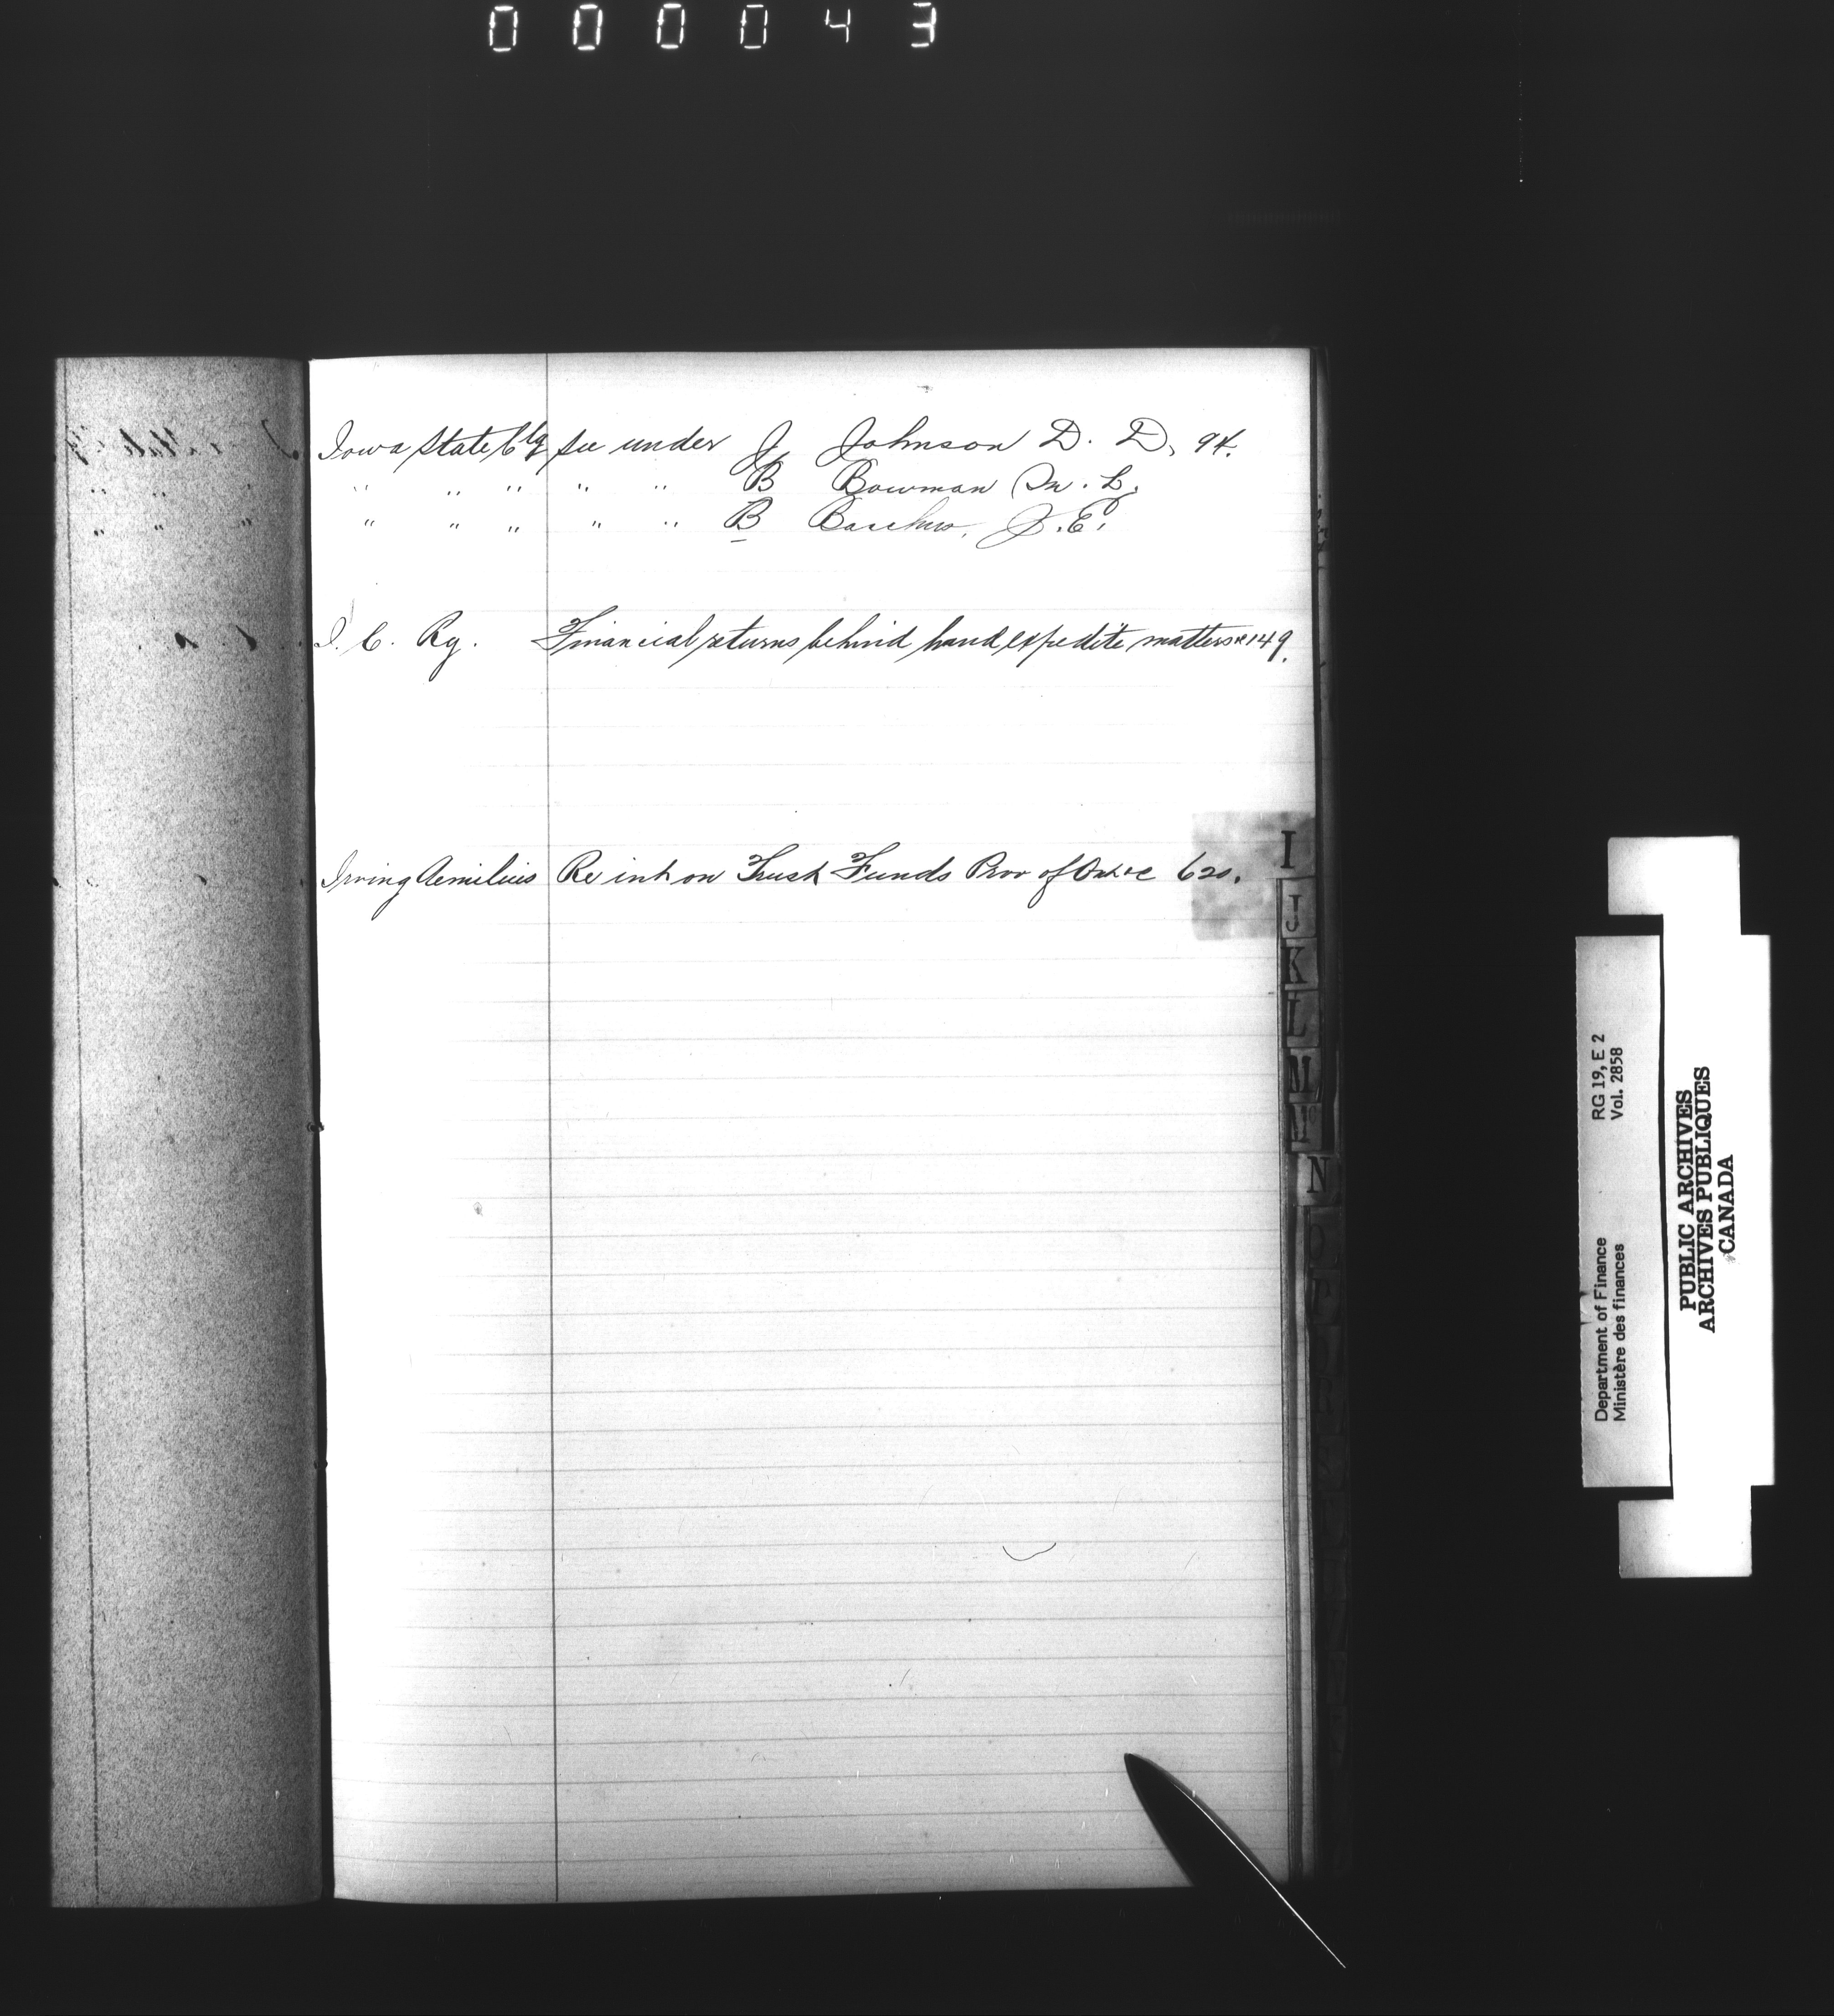 000043
Iowa State Clg see under J Johnson D. D. 94.
" " " " " B Bowman M. L.
" " " " " B J. E.
I. C. Ry. Financial returns behind hand expedite matters &c 149.
Irving Aemilius Re int on Trust Funds Prov of Ont &c 620.
I
J
K
L
M
N
Department of Finance RG 19, E 2
Ministère des finances Vol. 2858
PUBLIC ARCHIVES
ARCHIVES PUBLIQUES
CANADA